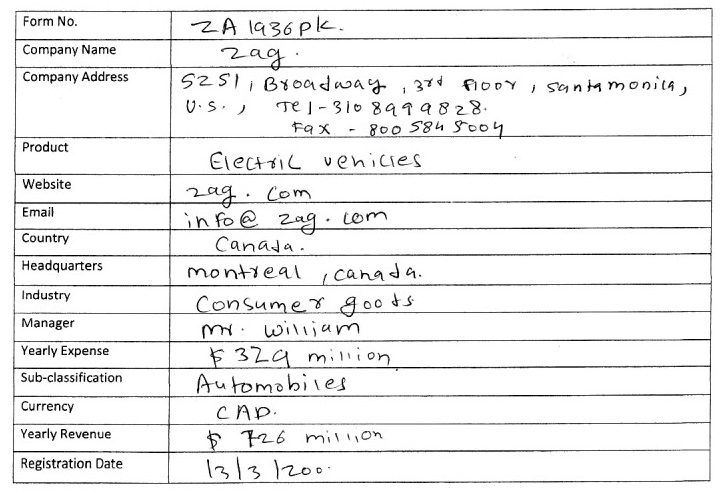 Form No. ZA 1936pk.
Company Name zag.
Company Address 5251, Broadway, 3rd floor, santamonica,
U.S., Tel-310 8999828.
Fax - 800 584 5004
Product Electric vehicles
Website zag. com
Email info@ zag. com
Country Canada.
Headquarters montreal, canada.
Industry Consumer goods
Manager mr. william
Yearly Expense $ 329 million
Sub-classification Automobiles
Currency CAD.
Yearly Revenue $ 726 million
Registration Date 13/3/200.